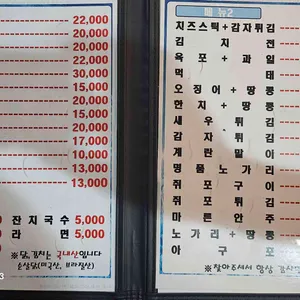 22,000
22,000
22,000
22,000
30,000
15,000
20,000
20,000
17,000
10,000
13,000
13,000
잔치국수 5,000
라면 5,000
※ 닭,김치는 국내산입니다
메뉴2
치즈스틱+감자튀김
김치전
육포+과일
먹태
오징어+땅콩
한치+땅콩
새우튀김
감자튀김
계란말이
명품노가리
쥐포구이
쥐포튀김
마른안주
노가리+땅콩
아구포
※찾아주셔서 항상